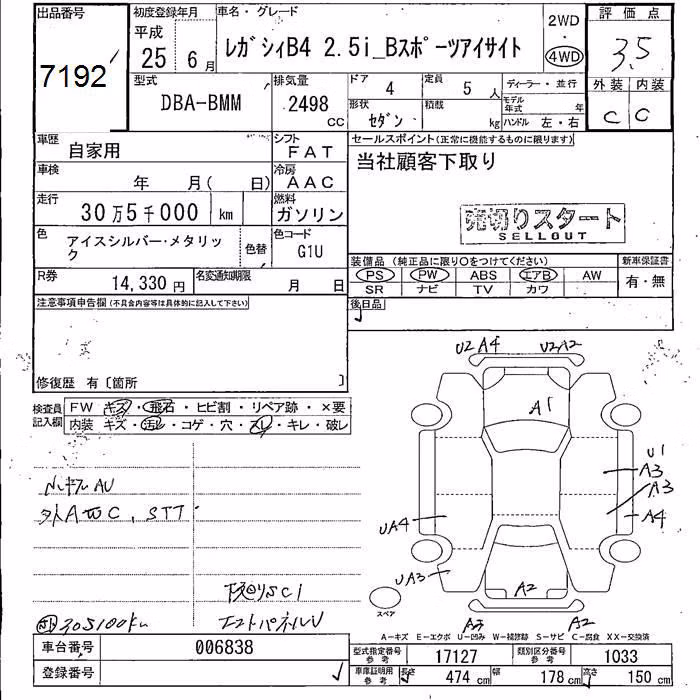 出品番号
7192
初度登録年月
平成
25 6 月
車名・グレード
レガシィB4 2.5i_Bスポーツアイサイト
2WD
・
4WD
評価点
3.5
外装 内装
C C
型式
DBA-BMM
排気量
2498
CC
ドア
4
定員
5 人
形状
セダン
積載
kg
ディーラー・並行
モデル年式
年
ハンドル 左・右
車歴
自家用
シフト
FAT
車検
年 月( 日)
冷房
AAC
走行
30万5千000 km
燃料
ガソリン
色
アイスシルバー・メタリック
色替
色コード
G1U
R券
14,330 円
名変通知期限
月 日
セールスポイント(正常に機能するものに限ります)
当社顧客下取り
売切りスタート
SELLOUT
装備品(純正品に限り○をつけてください)
新車保証書
PS PW ABS エアB AW
SR ナビ TV カワ
有・無
後日品
注意事項申告欄(不具合内容等は具体的に記入して下さい)
修復歴 有〔箇所 〕
検査員記入欄
FW キズ・飛石・ヒビ割・リペア跡・×要
内装 キズ・汚レ・コゲ・穴・スレ・キレ・破レ
外AWC, STT
下廻りSC1
305100km
エンドパネルV
U2 A4
U2A2
A1
U1
A3
A3
A4
UA4
UA3
A2
A3
A2
スペア
A-キズ E-エクボ U-凹み W-補修跡 S-サビ C-腐食 XX-交換済
車台番号
006838
登録番号
型式指定番号
参考
17127
類別区分番号
参考
1033
車庫証明用
参考
長さ
474 cm
幅
178 cm
高さ
150 cm